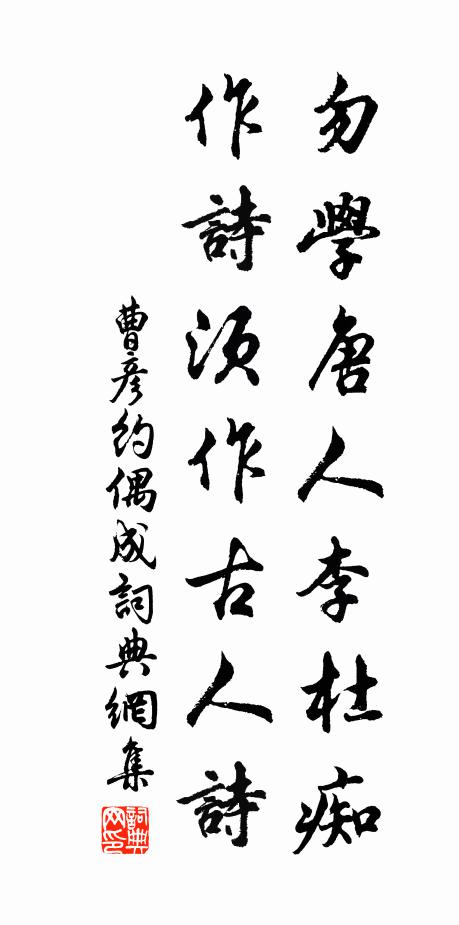 勿學唐人李杜痴
作詩須作古人詩
曹彦約偶成詞典網集
詞典網印